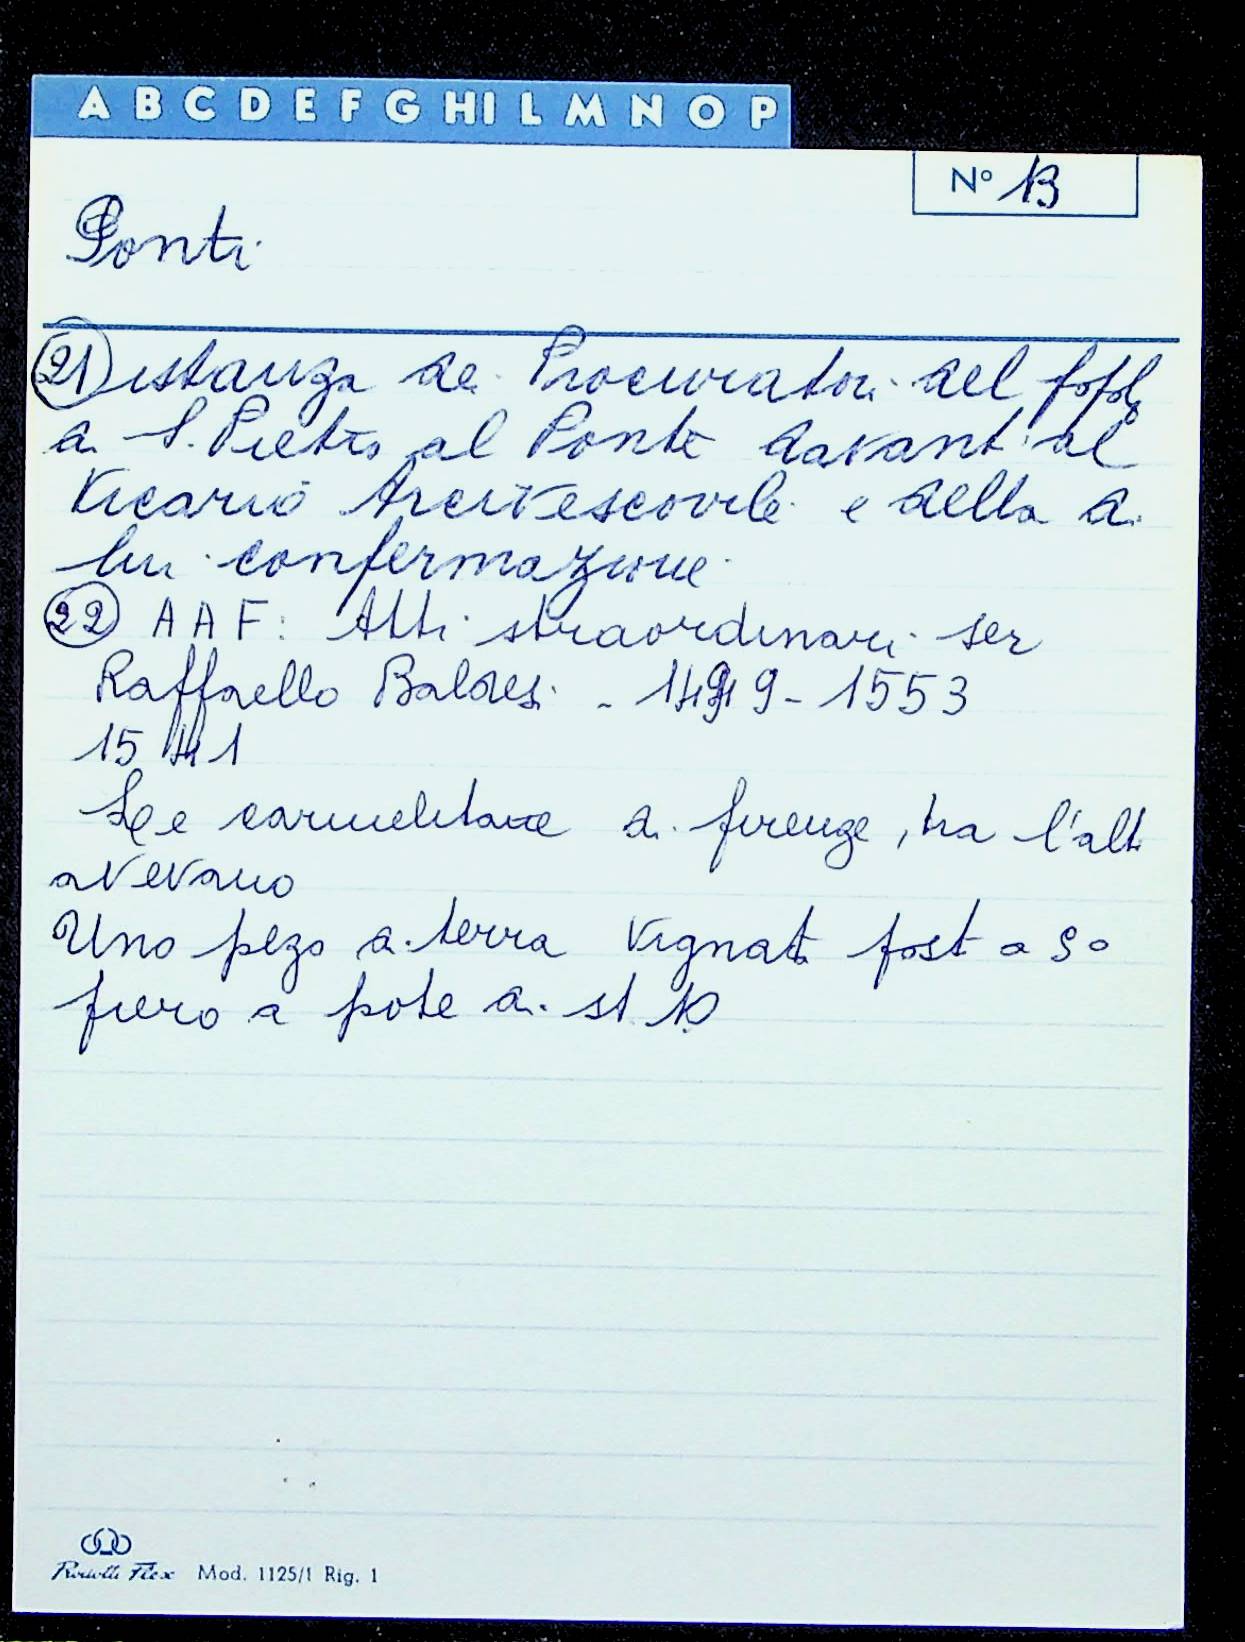 A B C D E F G H I L M N O P
Nº 13
Ponti
21) istanza dei Procuratori del popolo
di S. Pietro al Ponte davanti al
Vicario Arcivescovile e della di
lui confermazione
22 A A F: Atti straordinari ser
Raffaello Baldesi - 1499-1553
1541
Le carmelitane di firenze, tra l'alt
avevano
Uno pezo di terra vignat post a So
piero a pote di st 10
Mod. 1125/1 Rig. 1